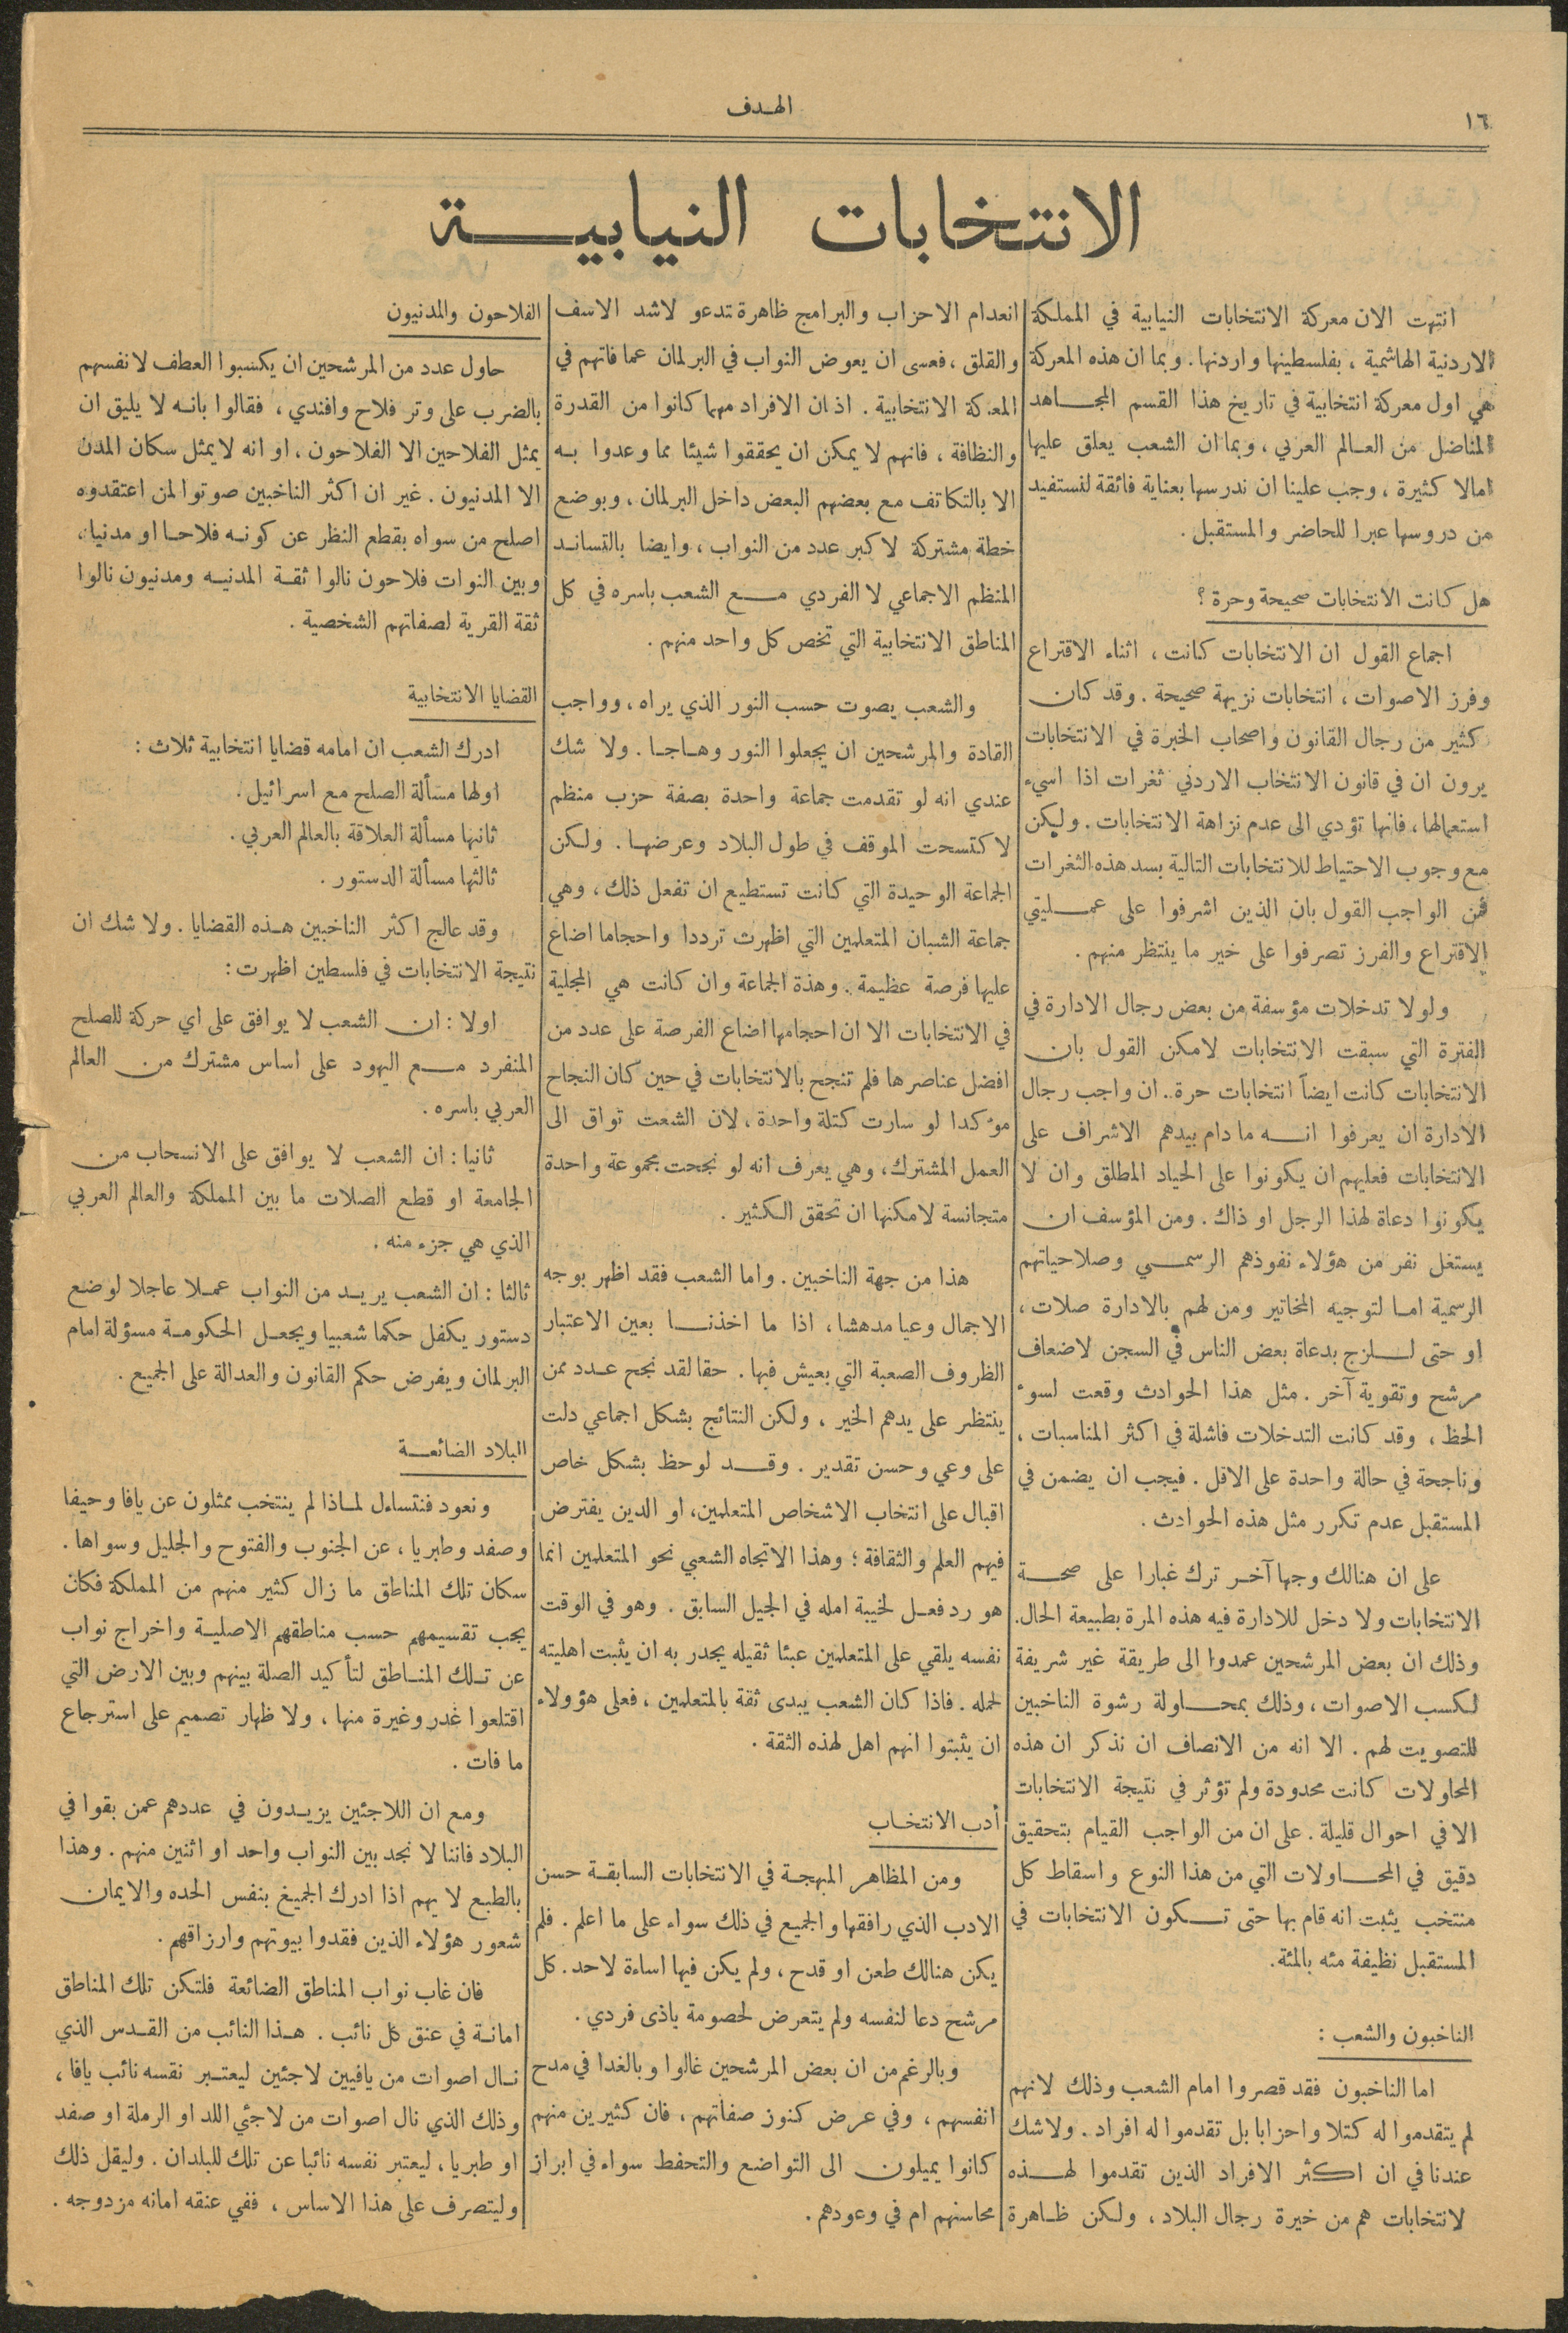 ١٦
الهدف
الانتخابات النيابية
انتهت الان معركة الانتخابات النيابية في المملكة
الاردنية الهاشمية ، بفلسطينها واردنها . وبما ان هذه المعركة
هي اول معركة انتخابية في تاريخ هذا القسم المجاهد
المناضل من العالم العربي ، وبما ان الشعب يعلق عليها
امالا كثيرة ، وجب علينا ان ندرسها بعناية فائقة لنستفيد
من دروسها عبرا للحاضر والمستقبل .
هل كانت الانتخابات صحيحة وحرة ؟
اجماع القول ان الانتخابات كانت ، اثناء الاقتراع
وفرز الاصوات ، انتخابات نزيهة صحيحة . وقد كان
كثير من رجال القانون واصحاب الخبرة في الانتخابات
يرون ان في قانون الانتخاب الاردني ثغرات اذا اسيء
استعمالها ، فانها تؤدي الى عدم نزاهة الانتخابات . ولكن
مع وجوب الاحتياط للانتخابات التالية بسد هذه الثغرات
فمن الواجب القول بان الذين اشرفوا على عمليتي
الاقتراع والفرز تصرفوا على خير ما ينتظر منهم .
ولولا تدخلات مؤسفة من بعض رجال الادارة في
الفترة التي سبقت الانتخابات لامكن القول بان
الانتخابات كانت ايضاً انتخابات حرة . ان واجب رجال
الادارة ان يعرفوا انه ما دام بيدهم الاشراف على
الانتخابات فعليهم ان يكونوا على الحياد المطلق وان لا
يكونوا دعاة لهذا الرجل او ذاك . ومن المؤسف ان
يستغل نفر من هؤلاء نفوذهم الرسمي وصلاحياتهم
الرسمية اما لتوجيه المخاتير ومن لهم بالادارة صلات ،
او حتى للزج بدعاة بعض الناس في السجن لاضعاف
مرشح وتقوية آخر . مثل هذا الحوادث وقعت لسوء
الحظ ، وقد كانت التدخلات فاشلة في اكثر المناسبات ،
وناجحة في حالة واحدة على الاقل . فيجب ان يضمن في
المستقبل عدم تكرر مثل هذه الحوادث .
على ان هنالك وجها آخر ترك غبارا على صحة
الانتخابات ولا دخل للادارة فيه هذه المرة بطبيعة الحال.
وذلك ان بعض المرشحين عمدوا الى طريقة غير شريفة
لكسب الاصوات ، وذلك بمحاولة رشوة الناخبين
للتصويت لهم . الا انه من الانصاف ان نذكر ان هذه
المحاولات كانت محدودة ولم تؤثر في نتيجة الانتخابات
الا في احوال قليلة . على ان من الواجب القيام بتحقيق
دقيق في المحاولات التي من هذا النوع واسقاط كل
منتخب يثبت انه قام بها حتى تكون الانتخابات في
المستقبل نظيفة مئه بالمئة.
الناخبون والشعب :
اما الناخبون فقد قصروا امام الشعب وذلك لانهم
لم يتقدموا له كتلا واحزابا بل تقدموا له افراد . ولا شك
عندنا في ان اكثر الافراد الذين تقدموا لهذه
لانتخابات هم من خيرة رجال البلاد ، ولكن ظاهرة
انعدام الاحزاب والبرامج ظاهرة تدعو لاشد الاسف
والقلق ، فعسى ان يعوض النواب في البرلمان عما فاتهم في
المعركة الانتخابية . اذ ان الافراد مهما كانوا من القدرة
والنظافة ، فانهم لا يمكن ان يحققوا شيئا مما وعدوا به
الا بالتكاتف مع بعضهم البعض داخل البرلمان ، وبوضع
خطة مشتركة لاكبر عدد من النواب ، وايضا بالتساند
المنظم الاجماعي لا الفردي مع الشعب باسره في كل
المناطق الانتخابية التي تخص كل واحد منهم .
والشعب يصوت حسب النور الذي يراه ، وواجب
القادة والمرشحين ان يجعلوا النور وهاجا . ولا شك
عندي انه لو تقدمت جماعة واحدة بصفة حزب منظم
لاكتسحت الموقف في طول البلاد وعرضها . ولكن
الجماعة الوحيدة التي كانت تستطيع ان تفعل ذلك ، وهي
جماعة الشبان المتعلمين التي اظهرت ترددا واحجاما اضاع
عليها فرصة عظيمة . وهذة الجماعة وان كانت هي المجلية
في الانتخابات الا ان احجامها اضاع الفرصة على عدد من
افضل عناصرها فلم تنجح بالانتخابات في حين كان النجاح
مؤكدا لو سارت كتلة واحدة ، لان الشعت تواق الى
العمل المشترك ، وهي يعرف انه لو نجحت مجموعة واحدة
متجانسة لامكنها ان تحقق الكثير .
هذا من جهة الناخبين . واما الشعب فقد اظهر بوجه
الاجمال وعيا مدهشا ، اذا ما اخذنا بعين الاعتبار
الظروف الصعبة التي يعيش فيها . حقا لقد نجح عدد ممن
ينتظر على يدهم الخير ، ولكن النتائج بشكل اجماعي دلت
على وعي وحسن تقدير . وقد لوحظ بشكل خاص
اقبال على انتخاب الاشخاص المتعلمين، او الدين يفترض
فيهم العلم والثقافة ؛ وهذا الاتجاه الشعبي نحو المتعلمين انما
هو رد فعل لخيبة امله في الجيل السابق . وهو في الوقت
نفسه يلقي على المتعلمين عبئا ثقيله يجدر به ان يثبت اهليته
لحمله . فاذا كان الشعب يبدى ثقة بالمتعلمين ، فعلى هؤولاء
ان يثبتوا انهم اهل لهذه الثقة .
أدب الانتخاب
ومن المظاهر المبهجة في الانتخابات السابقة حسن
الادب الذي رافقها والجميع في ذلك سواء على ما اعلم . فلم
يكن هنالك طعن او قدح ، ولم يكن فيها اساءة لاحد . كل
مرشح دعا لنفسه ولم يتعرض لخصومة باذى فردي .
وبالرغم من ان بعض المرشحين غالوا وبالغدا في مدح
انفسهم ، وفي عرض كنوز صفاتهم ، فان كثيرين منهم
كانوا يميلون الى التواضع والتحفط سواء في ابراز
محاسنهم ام في وعودهم .
الفلاحون والمدنيون
حاول عدد من المرشحين ان يكسبوا العطف لانفسهم
بالضرب على وتر فلاح وافندي ، فقالوا بانه لا يليق ان
يمثل الفلاحين الا الفلاحون ، او انه لا يمثل سكان المدن
الا المدنيون . غير ان اكثر الناخبين صوتوا لمن اعتقدوه
اصلح من سواه بقطع النظر عن كونه فلاحا او مدنيا ،
وبين النوات فلاحون نالوا ثقة المدنيه ومدنيون نالوا
ثقة القرية لصفاتهم الشخصية .
القضايا الانتخابية
ادرك الشعب ان امامه قضايا انتخابية ثلاث :
اولها مسألة الصلح مع اسرائيل .
ثانيها مسألة العلاقة بالعالم العربي .
ثالثها مسألة الدستور .
وقد عالج اكثر الناخبين هذه القضايا . ولا شك ان
نتيجة الانتخابات في فلسطين اظهرت :
اولا : ان الشعب لا يوافق على اي حركة للصلح
المنفرد مع اليهود على اساس مشترك من العالم
العربي باسره .
ثانيا : ان الشعب لا يوافق على الانسحاب من
الجامعة او قطع الصلات ما بين المملكة والعالم العربي
الذي هي جزء منه .
ثالثا : ان الشعب يريد من النواب عملا عاجلا لوضع
دستور يكفل حكما شعبيا ويجعل الحكومة مسؤلة امام
البرلمان ويفرض حكم القانون والعدالة على الجميع .
البلاد الضائعة
ونعود فنتساءل لماذا لم ينتخب ممثلون عن يافا وحيفا
وصفد وطبريا ، عن الجنوب والفتوح والجليل وسواها .
سكان تلك المناطق ما زال كثير منهم من المملكة فكان
يجب تقسيمهم حسب مناطقهم الاصلية واخراج نواب
عن تلك المناطق لتأكيد الصلة بينهم وبين الارض التي
اقتلعوا غدر وغيرة منها ، ولاظهار تصميم على استرجاع
ما فات .
ومع ان اللاجئين يزيدون في عددهم عمن بقوا في
البلاد فاننا لا نجد بين النواب واحد او اثنين منهم . وهذا
بالطبع لا يهم اذا ادرك الجميغ بنفس الحده والايمان
شعور هؤلاء الذين فقدوا بيوتهم وارزاقهم .
فان غاب نواب المناطق الضائعة فلتكن تلك المناطق
امانة في عنق كل نائب . هذا النائب من القدس الذي
نال اصوات من يافيين لاجئين ليعتبر نفسه نائب يافا ،
وذلك الذي نال اصوات من لاجئي اللد او الرملة او صفد
او طبريا ، ليعتبر نفسه نائبا عن تلك للبلدان . وليقل ذلك
وليتصرف على هذا الاساس ، ففي عنقه امانه مزدوجه .